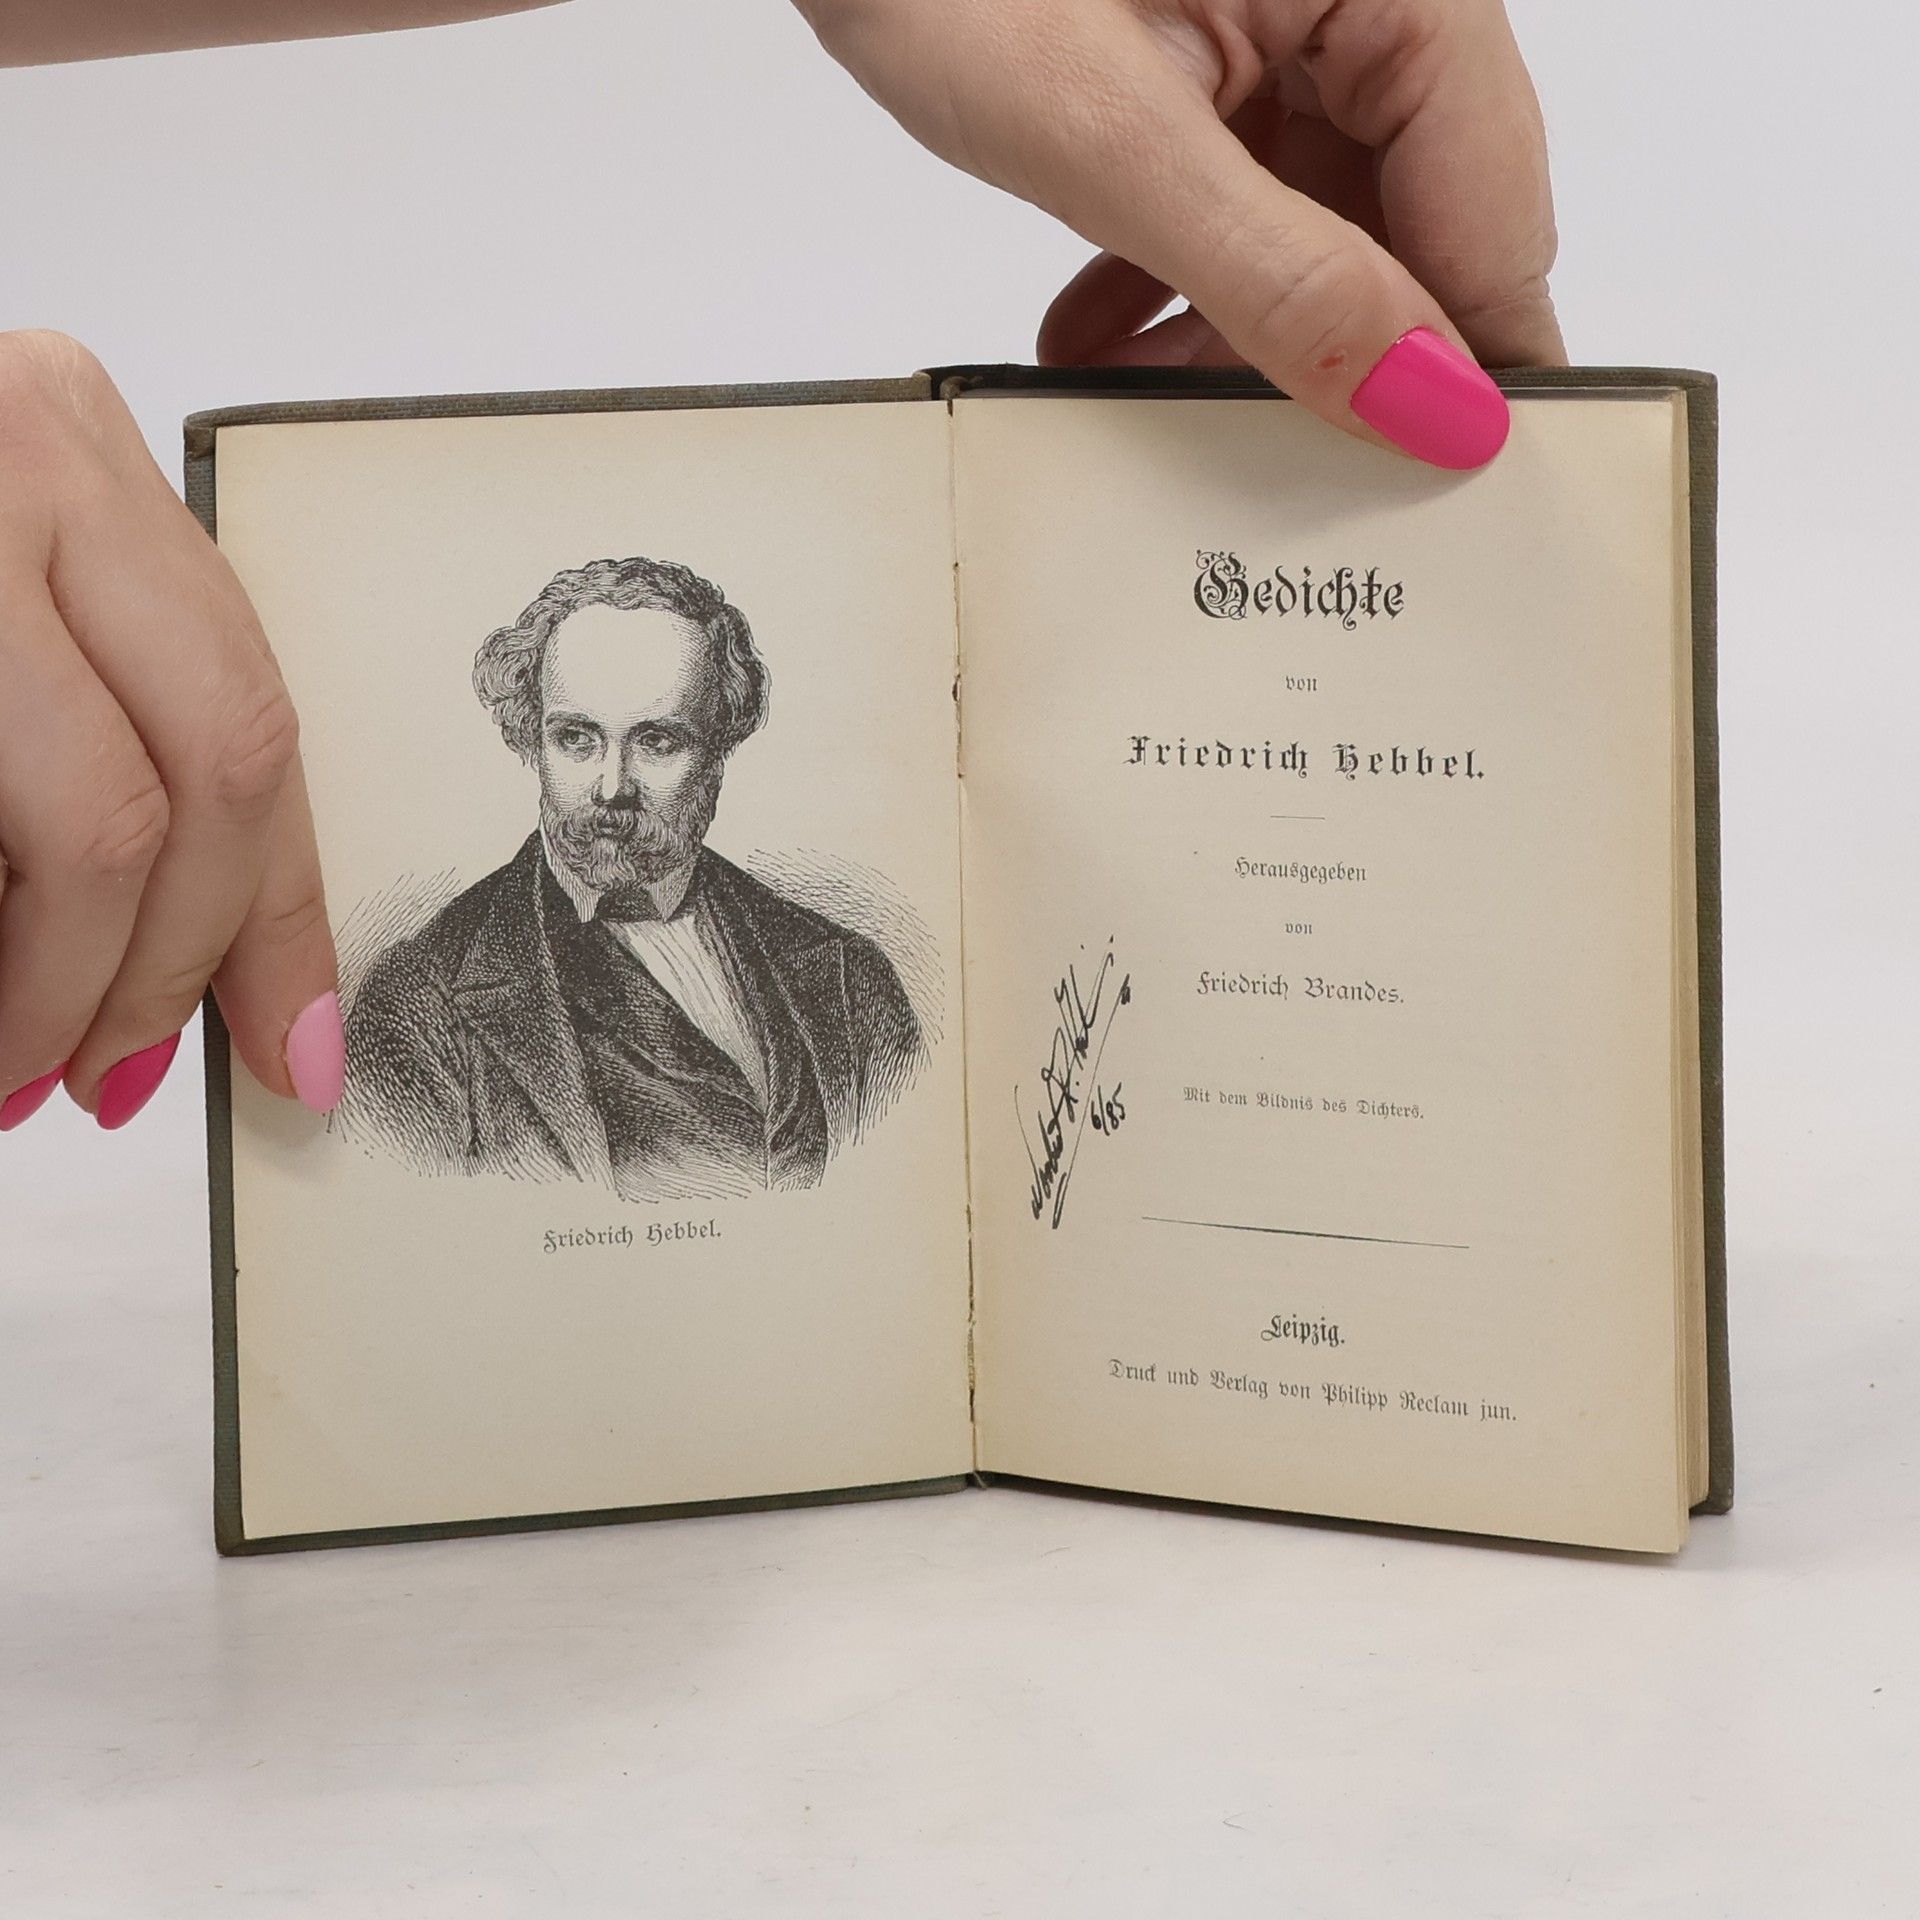 Friedrich Hebbel.
Gedichte
von
Friedrich Hebbel.
Herausgegeben
von
Friedrich Brandes.
Mit dem Bildnis des Dichters.
6/85
Leipzig.
Druck und Verlag von Philipp Reclam jun.